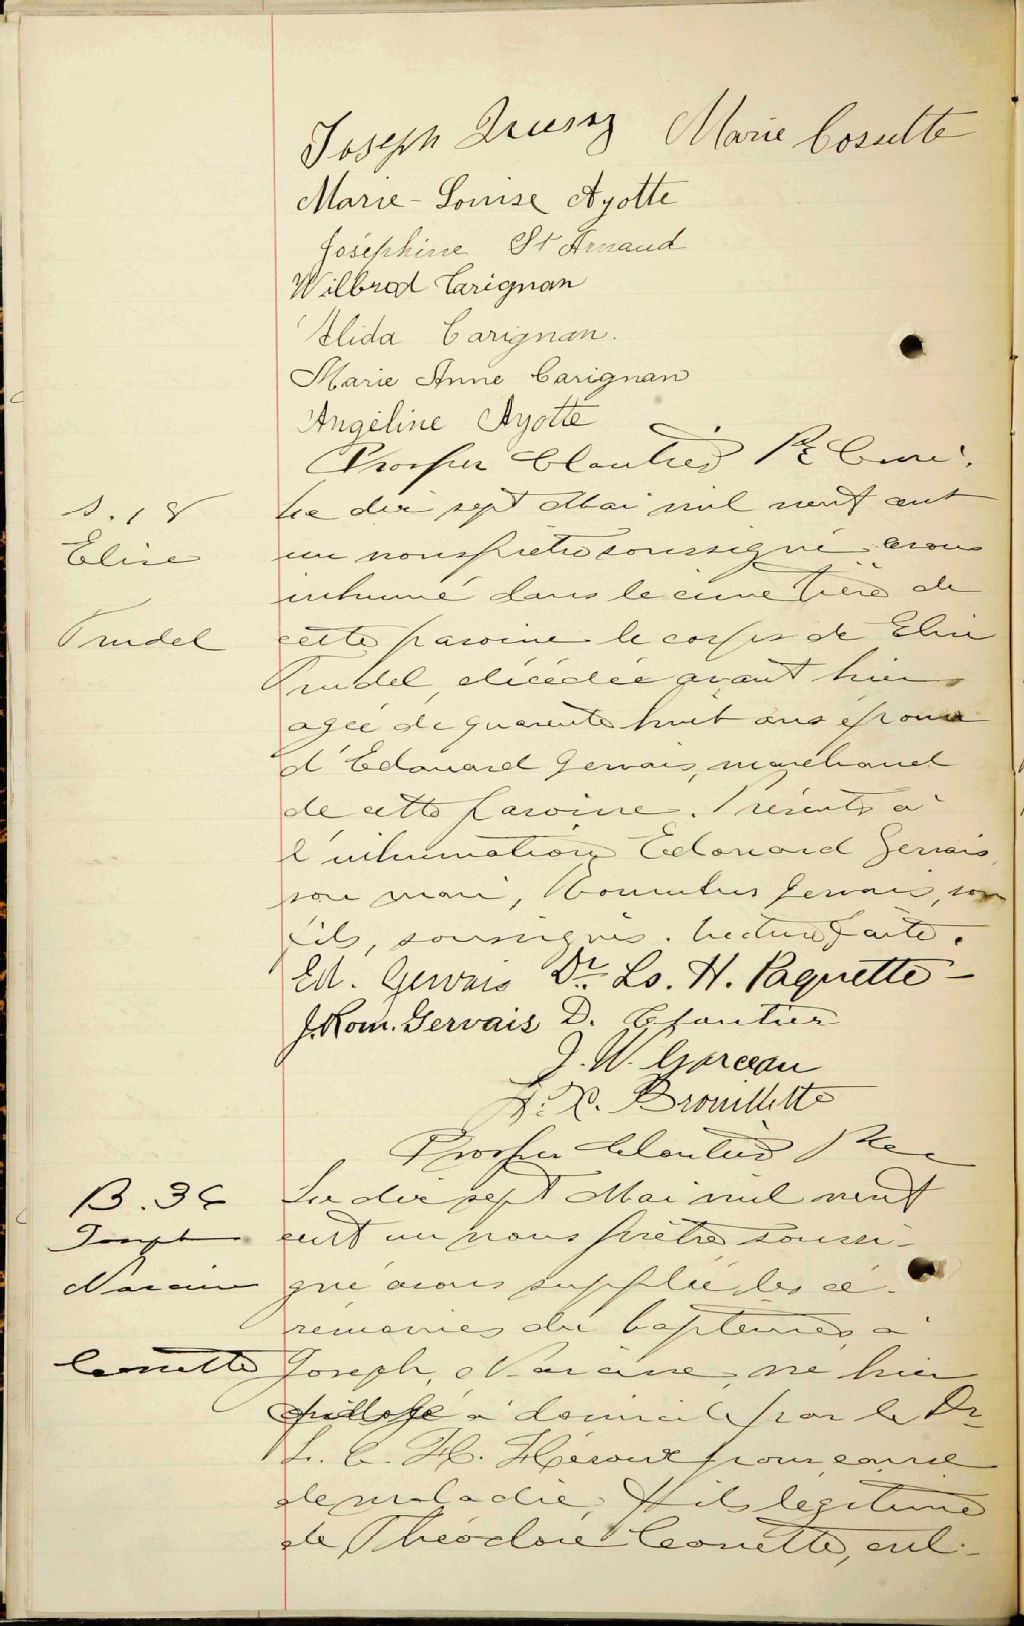 Joseph Marie Cossette
Marie-Louise Ayotte
Joséphine St Arnaud
Wilbrod Carignan
Alida Carignan.
Marie Anne Carignan
Angéline Ayotte
Prosper Cloutier Ptre Curé.
S. 18
Elise
Trudel
Le dix sept Mai mil neuf cent
un nous prêtre soussigné avons
inhumé dans le cimetière de
cette paroisse le corps de Elise
Trudel, décédée avant hier
agée de quarante huit ans épouse
d'Edouard Gervais, marchand
de cette paroisse. Présents à
l'inhumation Edouard Gervais
son mari, Romulus Gervais, son
fils, soussignés. Lecture faite.
Ed. Gervais Dr. Ls. H. Paquette
J. Rom. Gervais D. Cloutier
J. W. Garceau
Brouillette
Prosper Cloutier Ptre
B. 36
Joseph
Narcisse
Cossette
Le dix sept Mai mil neuf
cent un nous prêtre soussi-
gné avons supplée les cé-
rémonies du baptême à
Joseph, Narcisse, né hier
à domicile par le Dr
L. C. H. Héroux pour cause
de maladie, fils légitime
de Théodore Cossette, cul-